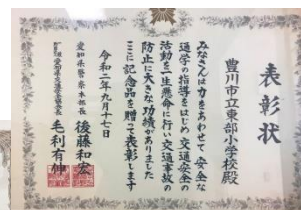 表彰状
豊川市立東部小学校殿
みなさんは力をあわせて安全な
通学の指導をはじめ交通安全の
活動を一生懸命に行い交通事故の
防止に大きな功績がありました
ここに記念品を贈って表彰します
令和二年九月十七日
愛知県警察本部長 後藤和宏
毛利有伸